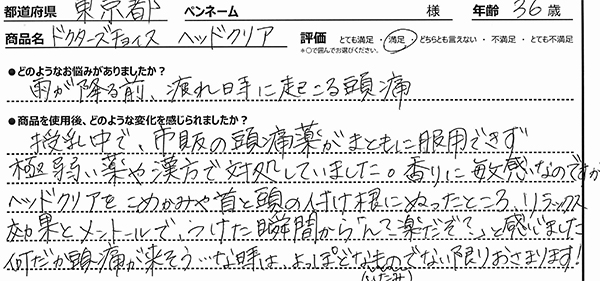 都道府県 東京都 ペンネーム 様 年齢 36 歳
商品名 ドクターズチョイス ヘッドクリア 評価 とても満足・満足・どちらとも言えない・不満足・とても不満足
*○で囲んでお選びください。
●どのようなお悩みがありましたか?
雨が降る前、疲れ目時に起こる頭痛
●商品を使用後、どのような変化を感じられましたか?
授乳中で、市販の頭痛薬がまともに服用できず
極弱い薬や漢方で対処していました。香りに敏感なのですが
ヘッドクリアをこめかみや首と頭の付け根にぬったところ、リラックス
効果とメントールで、つけた瞬間から「ん?楽だぞ?」と感じました
何だか頭痛が来そう…な時は、よっぽどなものでない限りおさまります!
(いたみ)